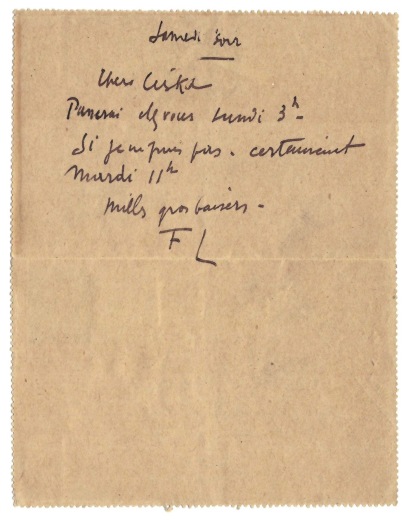 Samedi soir
Chère Ciska
Passerai chez vous Lundi 3h -
Si je ne puis pas - certainement
Mardi 11h
Mille gros baisers -
F L